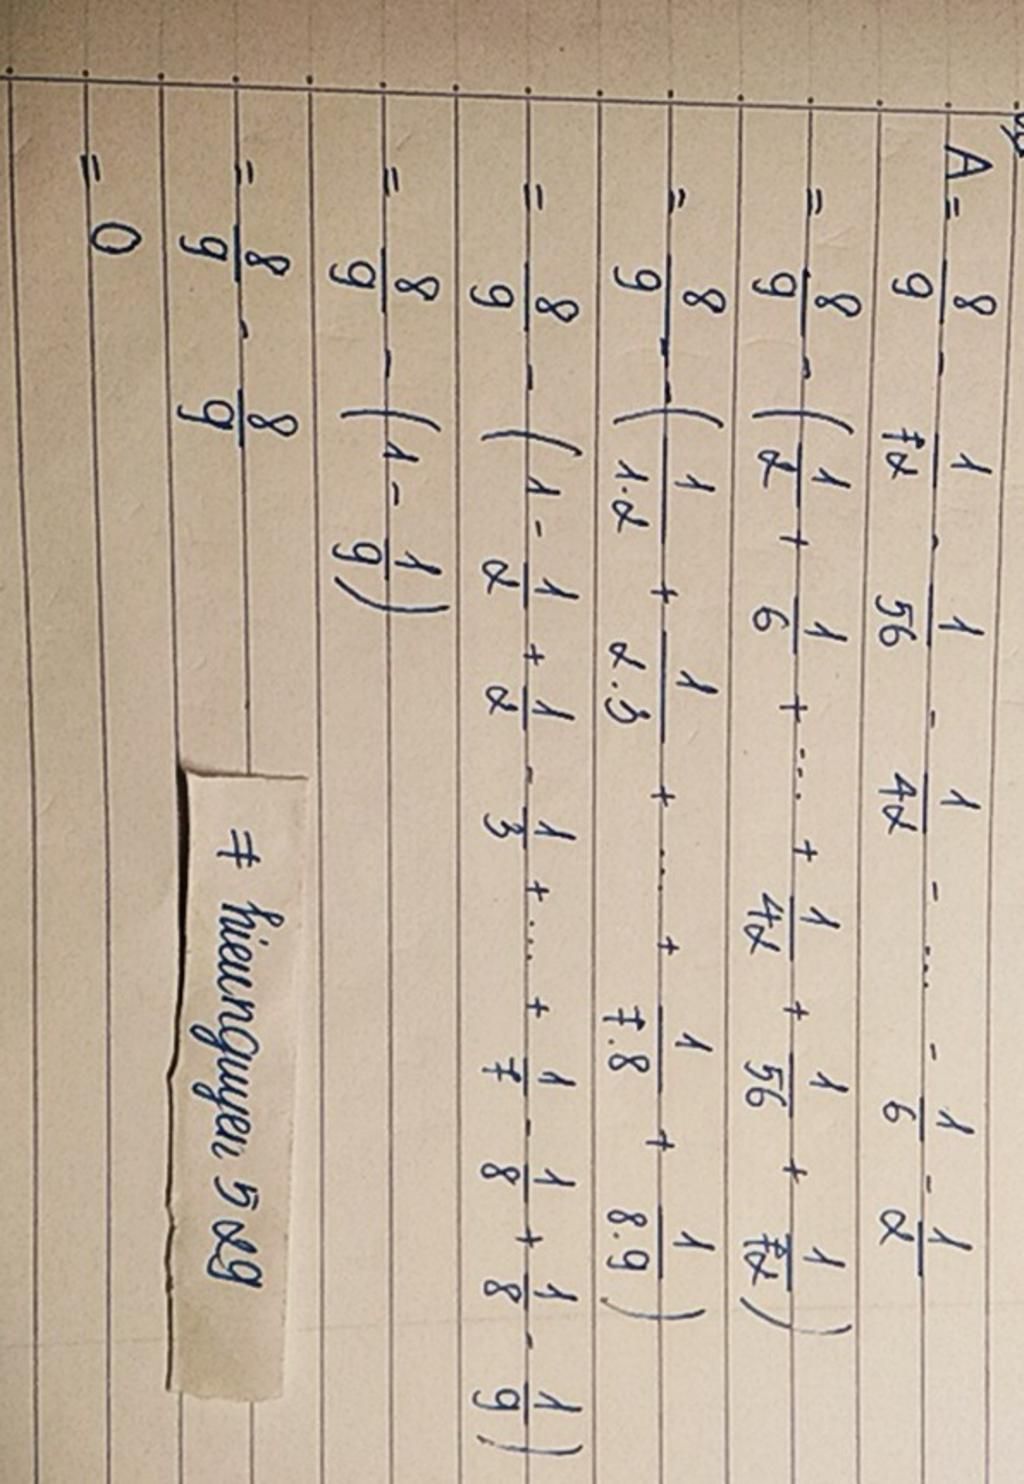 A = 8/9 - 1/72 - 1/56 - 1/42 - ... - 1/6 - 1/2
= 8/9 - (1/2 + 1/6 + ... + 1/42 + 1/56 + 1/72)
= 8/9 - (1/1.2 + 1/2.3 + ... + 1/7.8 + 1/8.9)
= 8/9 - (1 - 1/2 + 1/2 - 1/3 + ... + 1/7 - 1/8 + 1/8 - 1/9)
= 8/9 - (1 - 1/9)
= 8/9 - 8/9
= 0
# hieunguyen 529